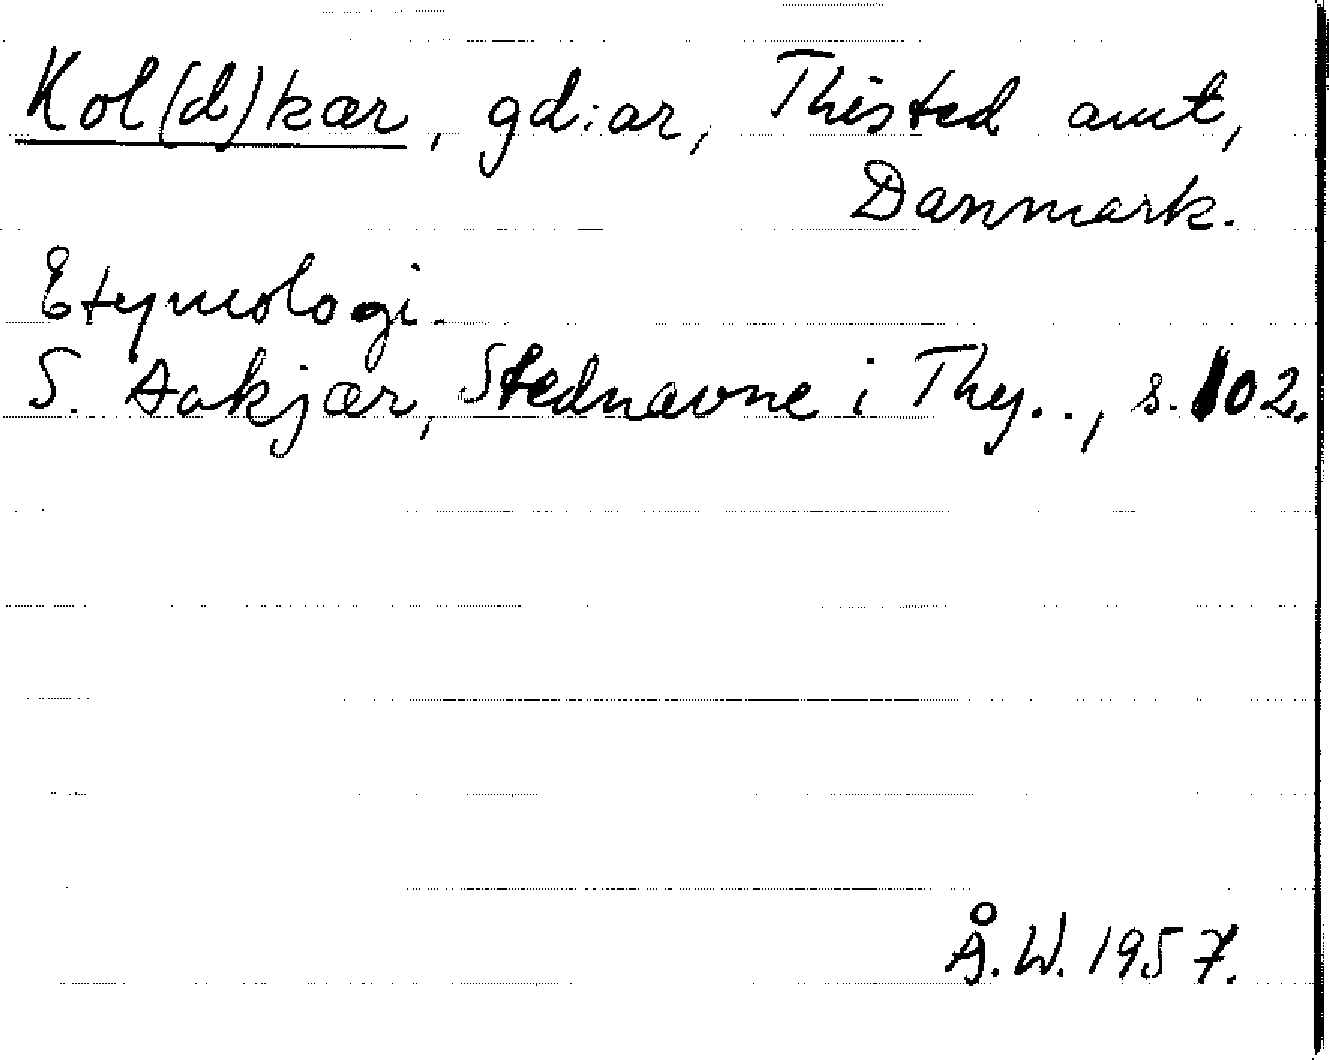 Kol(d)kær, gd:ar, Thisted amt,
Danmark.
Etymologi.
S. Aakjær, Stednavne i Thy.., s. 102.
Å.W. 1957.